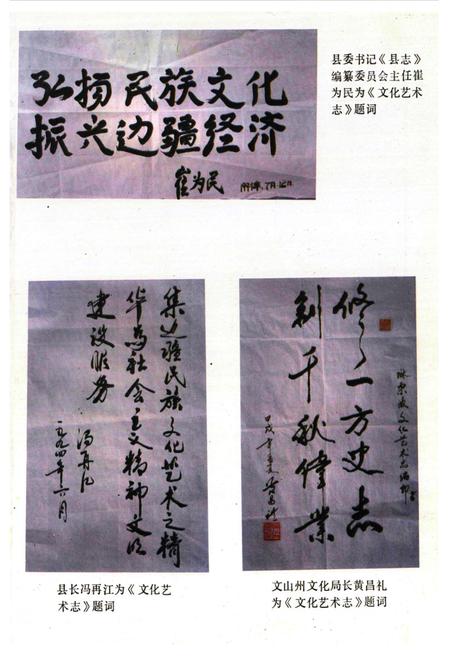 弘扬民族文化
振兴边疆经济
崔为民
县委书记《县志》
编纂委员会主任崔
为民为《文化艺术
志》题词
集边疆民族文化艺术之精
华为社会主义精神文明
建设服务
冯再江
一九九四年六月
县长冯再江为《文化艺
术志》题词
修一方史志
创千秋伟业
文化艺术志编
甲戌年
文山州文化局长黄昌礼
为《文化艺术志》题词